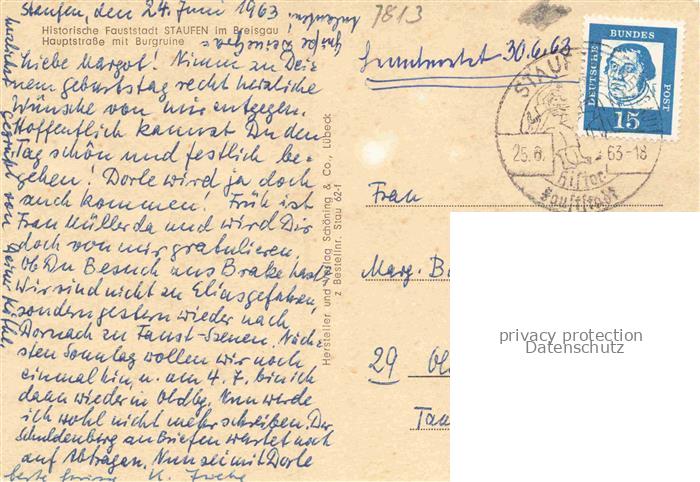 Staufen, den 24. Juni 1963
7813
Historische Fauststadt STAUFEN im Breisgau
Hauptstraße mit Burgruine
Liebe Margot! Nimm zu Dei-
nem Geburtstag recht herzliche
Wünsche von mir entgegen.
Hoffentlich kannst Du den
Tag schön und festlich be-
gehen! Dorle wird ja doch
auch kommen! Früh ist
Frau Müller da und wird Dir
doch von mir gratulieren.
Ob Du Besuch aus Brake hast?
Wir sind nicht zu Elias gefahren,
sondern gestern wieder nach
Dornach zu Faust-Szenen. Näch-
sten Sonntag wollen wir noch
einmal hin, u. am 4. 7. bin ich
dann wieder in Oldbg. Nun werde
ich wohl nicht mehr schreiben. Der
Schuldenberg an Briefen wartet noch
auf Abtragen. Nun sei mit Dorle
herzlichst gegrüßt von Deiner Käthe.
beste
Hersteller und Verlag Schöning & Co., Lübeck
z Bestellnr. Stau 62-1
30.6.63
DEUTSCHE BUNDES POST
15
STAUF
25.6. 63-18
histor.
Fauststadt
Frau
Marg. B
29 Ol
Tau
privacy protection
Datenschutz